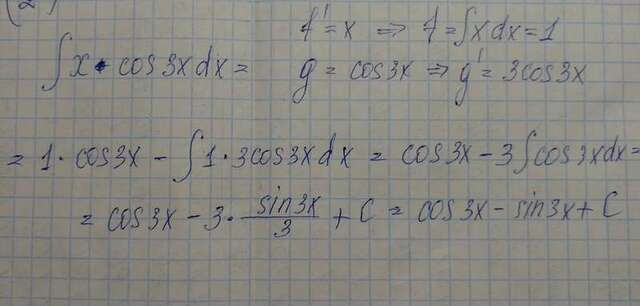 (2)
f' = x ⇒ f = ∫x dx = 1
∫ x · cos 3x dx = g = cos 3x ⇒ g' = 3cos 3x
= 1 · cos 3x − ∫ 1 · 3cos 3x dx = cos 3x − 3 ∫ cos 3x dx =
= cos 3x − 3 · sin 3x / 3 + C = cos 3x − sin 3x + C